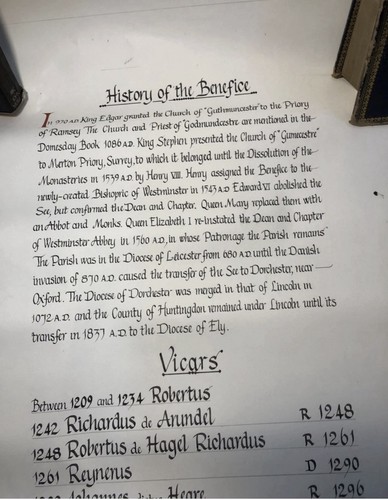 History of the Benefice
In 970 A.D. King Edgar granted the Church of "Guthmuncester" to the Priory
of Ramsey The Church and Priest of "Godmundcestre are mentioned in the
Domesday Book 1086 A.D. King Stephen presented the Church of "Gumecestre"
to Merton Priory, Surrey, to which it belonged until the Dissolution of the
Monasteries in 1539 A.D by Henry VIII. Henry assigned the Benefice to the
newly-created Bishopric of Westminster in 1543 A.D Edward VI abolished the
See, but confirmed the Dean and Chapter. Queen Mary replaced them with
an Abbot and Monks. Queen Elizabeth I re-instated the Dean and Chapter
of Westminster Abbey in 1560 A.D, in whose Patronage the Parish remains
The Parish was in the Diocese of Leicester from 680 A.D. until the Danish
invasion of 870 A.D. caused the transfer of the See to Dorchester, near
Oxford. The Diocese of Dorchester was merged in that of Lincoln in
1072 A.D. and the County of Huntingdon remained under Lincoln until its
transfer in 1837 A.D. to the Diocese of Ely.
Vicars
Between 1209 and 1234 Robertus
1242 Richardus de Arundel R 1248
1248 Robertus de Hagel Richardus R 1261
1261 Reynerus D 1290
Johannes Heare R 1296